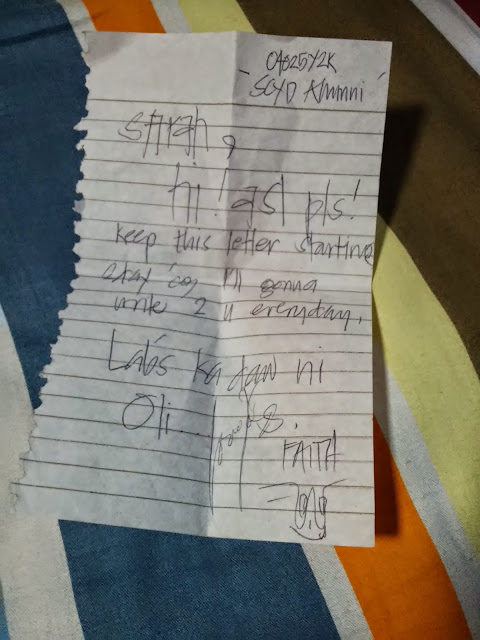 04025Y2K
SCYD Alumni
Sarah,
hi! asl pls!
keep this letter starting
2day 'coz I'll gonna
write 2 u everyday.
Labs ka daw ni
Oli...
FAITH